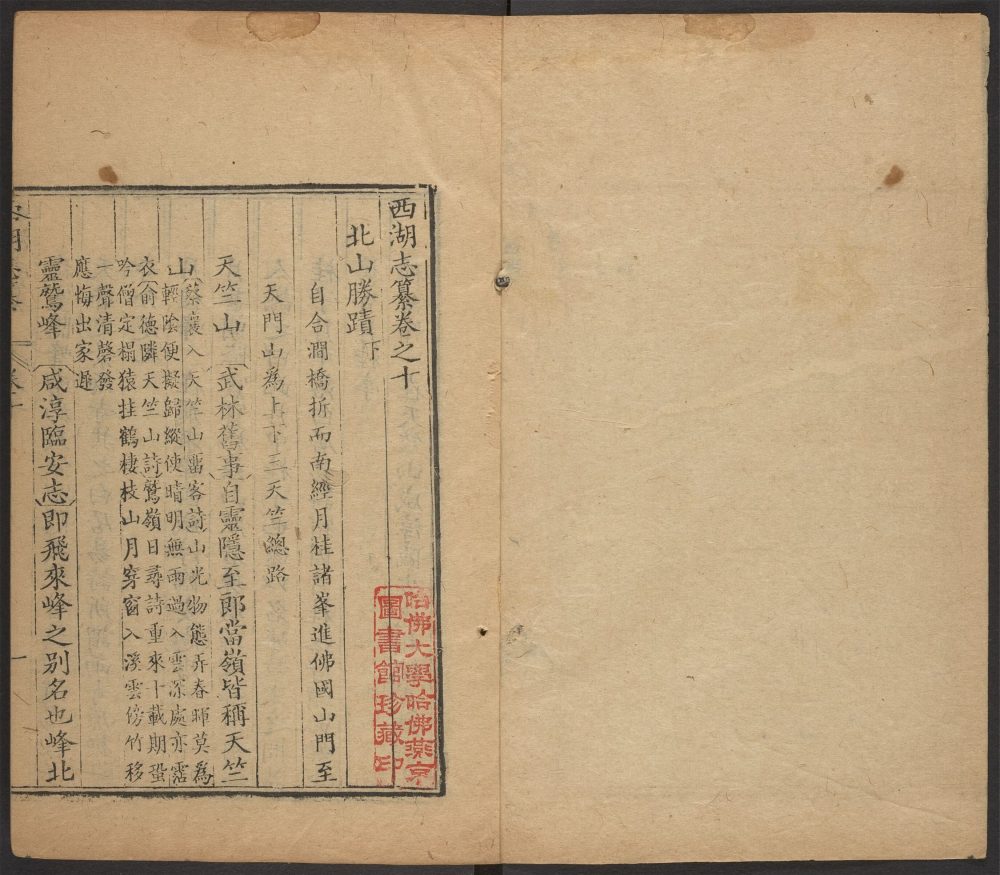 西湖志纂卷之十
北山勝蹟下
自合澗橋折而南經月桂諸峯進佛國山門至
天門山為上下三天竺總路
天竺山武林舊事自靈隱至郎當嶺皆稱天竺
山蔡襄入天竺山畱客詩山光物態弄春暉莫為
輕陰便擬歸縱使晴明無雨過入雲深處亦霑
衣俞德隣天竺山詩鷲嶺日尋詩重來十載期蛩
吟僧定榻猿挂鶴棲枝山月穿窗入溪雲傍竹移
一聲清磬發
應悔出家遲
靈鷲峰咸淳臨安志即飛來峰之別名也峰北
一
哈佛大學哈佛燕京
圖書館珍藏印